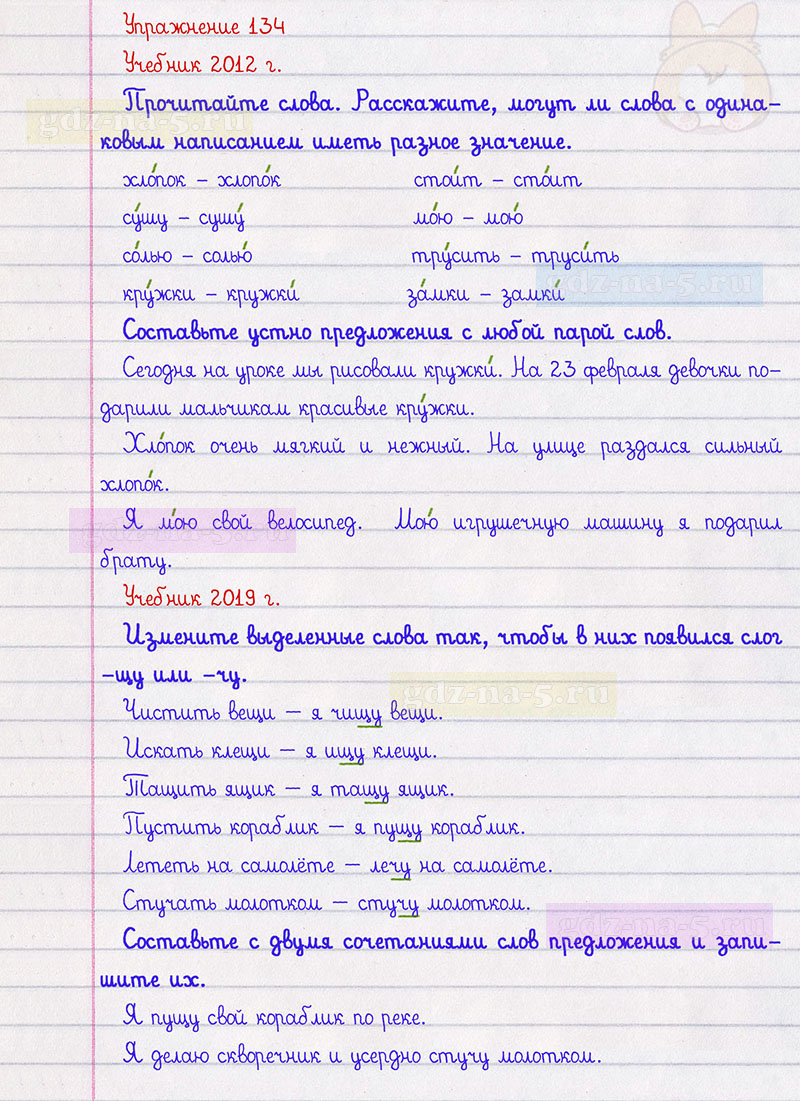 Упражнение 134
Учебник 2012 г.
Прочитайте слова. Расскажите, могут ли слова с одина-
gdz-na-5.ru
ковым написанием иметь разное значение.
хло́пок – хлопо́к стои́т – сто́ит
су́шу – сушу́ мо́ю – мою́
со́лью – солью́ тру́сить – труси́ть
gdz-na-5.ru
кру́жки – кружки́ за́мки – замки́
Составьте устно предложения с любой парой слов.
Сегодня на уроке мы рисовали кружки́. На 23 февраля девочки по-
дарили мальчикам красивые кру́жки.
Хло́пок очень мягкий и нежный. На улице раздался сильный
хлопо́к.
Я мо́ю свой велосипед. Мою́ игрушечную машину я подарил
gdz-na-5.ru
брату.
Учебник 2019 г.
Измените выделенные слова так, чтобы в них появился слог
-щу или -чу.
gdz-na-5.ru
Чистить вещи – я чищу вещи.
Искать клещи – я ищу клещи.
Тащить ящик – я тащу ящик.
Пустить кораблик – я пущу кораблик.
Лететь на самолёте – лечу на самолёте.
Стучать молотком – стучу молотком.
gdz-na-5.ru
Составьте с двумя сочетаниями слов предложения и запи-
шите их.
Я пущу свой кораблик по реке.
Я делаю скворечник и усердно стучу молотком.